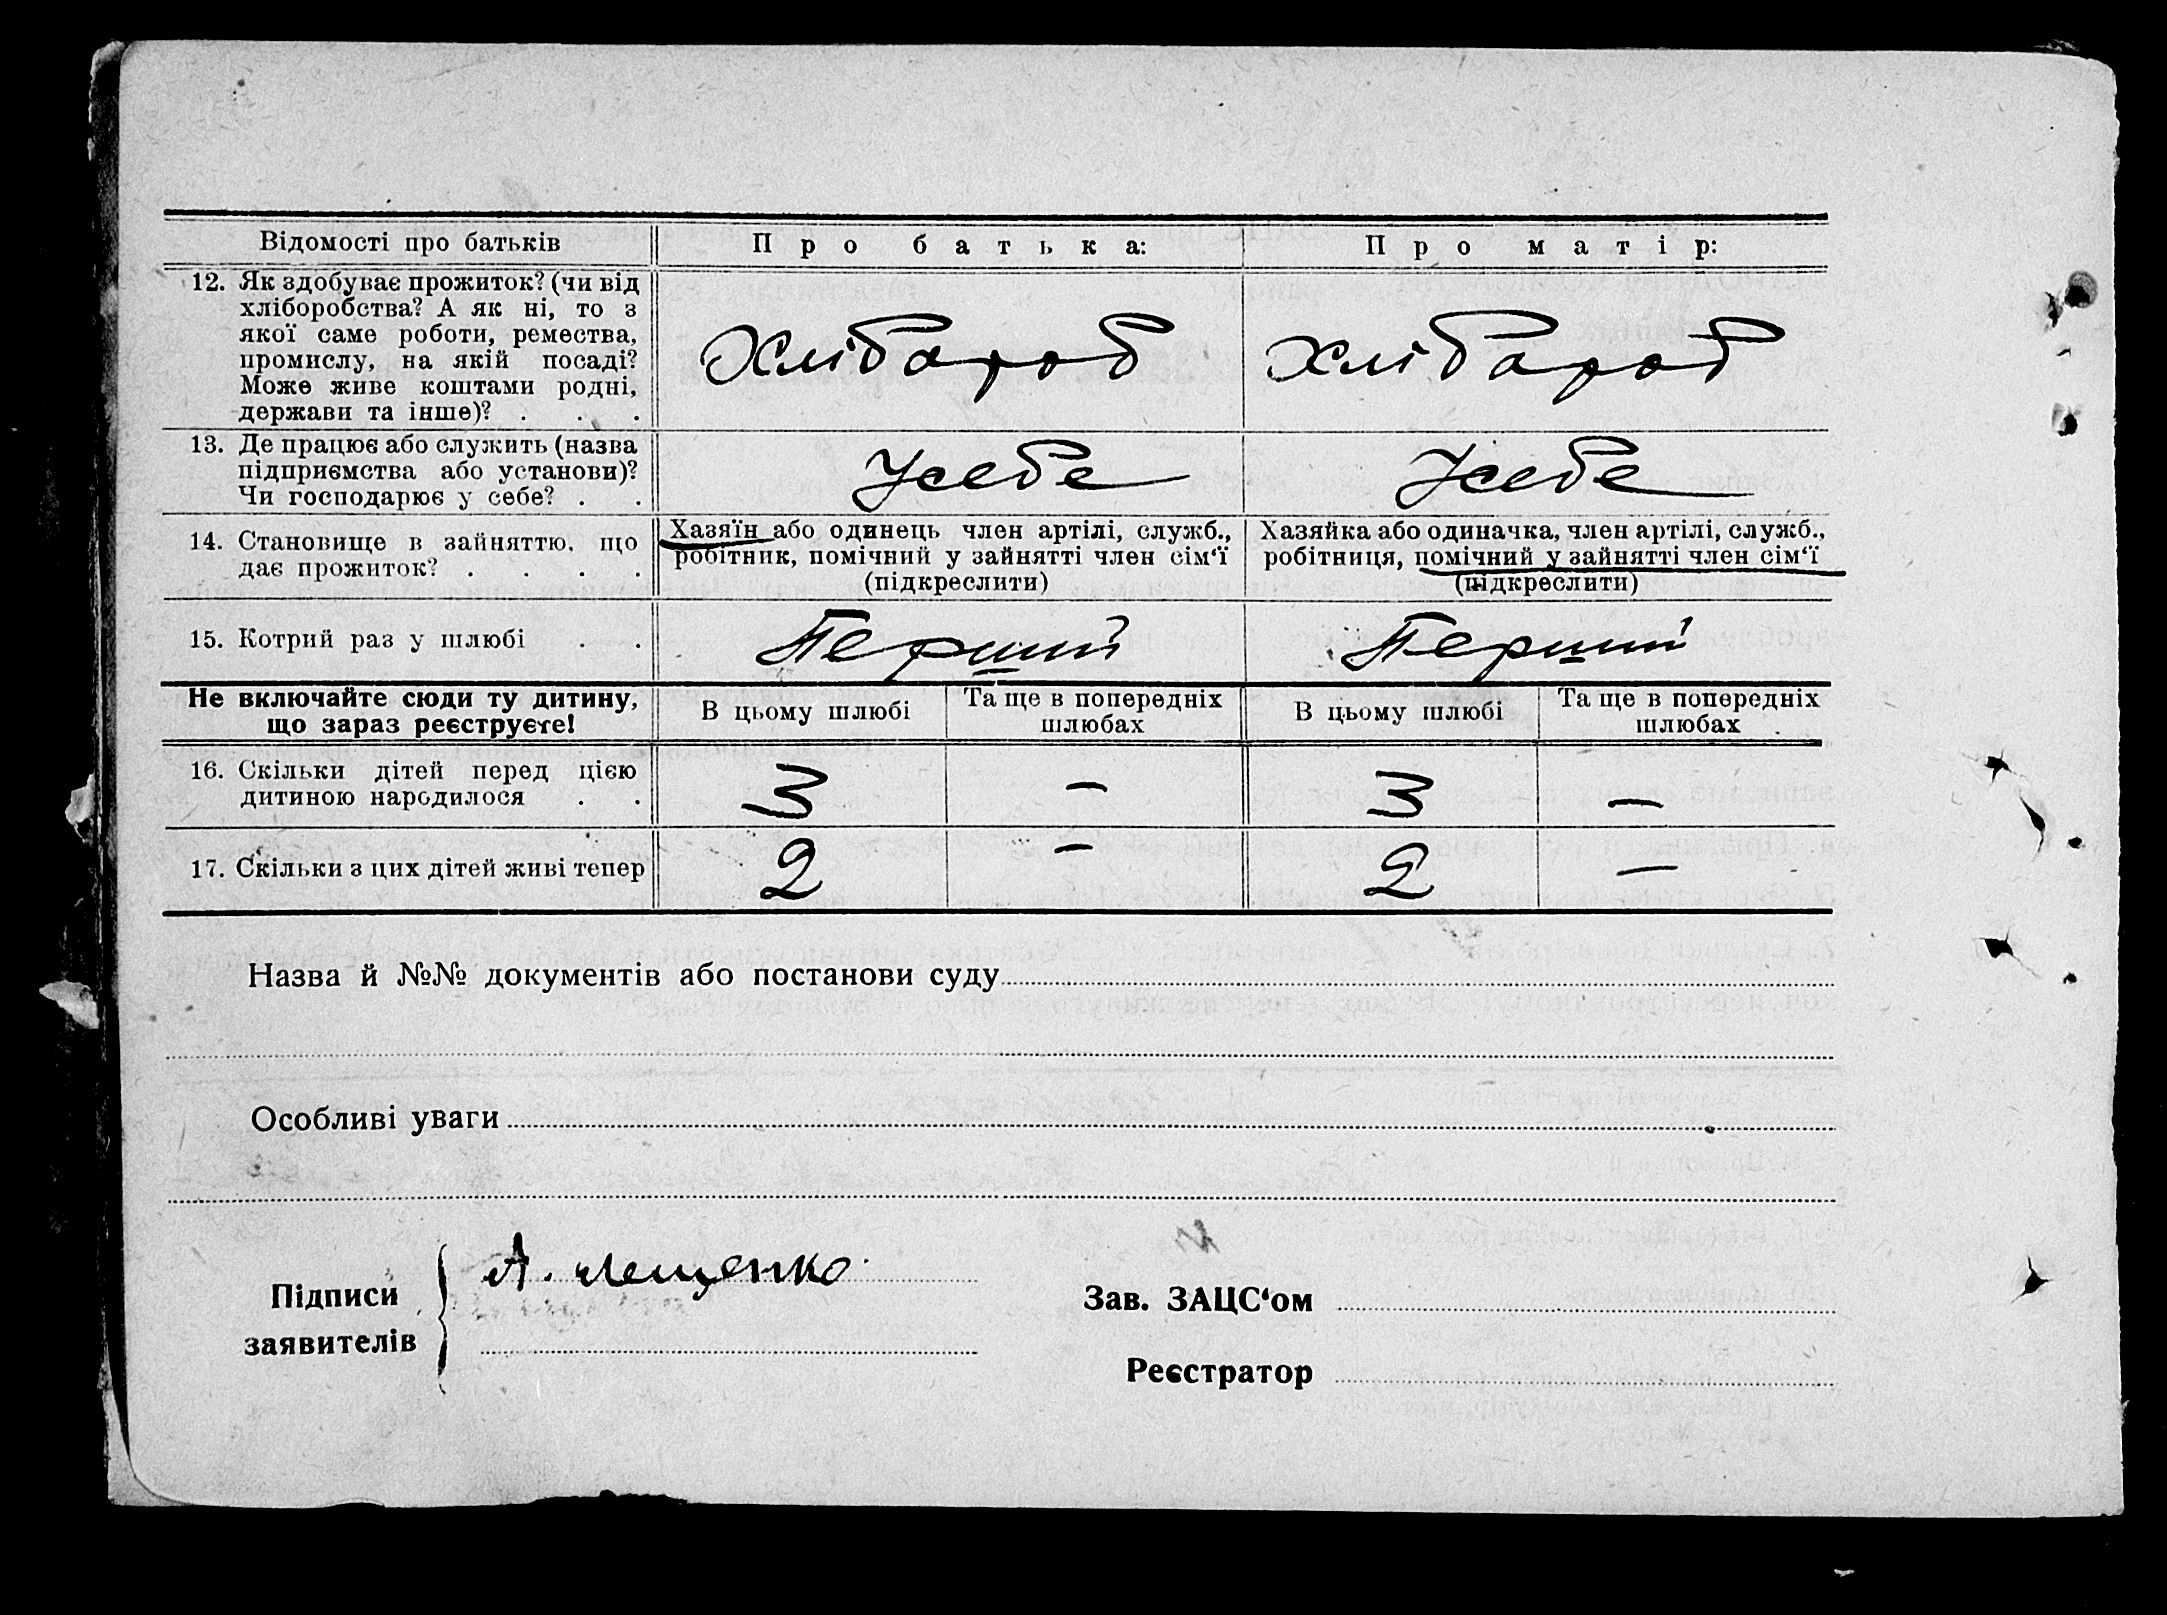 Відомості про батьків Про батька: Про матір:
12. Як здобуває прожиток? (чи від
хліборобства? А як ні, то з
якої саме роботи, ремества,
промислу, на якій посаді?
Може живе коштами родні,
держави та інше)? . . .
Хлібороб Хлібороб
13. Де працює або служить (назва
підприємства або установи)?
Чи господарює у себе? . .
Усебе Усебе
14. Становище в зайняттю, що
дає прожиток? . . . .
Хазяїн або одинець член артілі, служб.,
робітник, помічний у зайнятті член сім‘ї
(підкреслити)
Хазяйка або одиначка, член артілі, служб.,
робітниця, помічний у зайнятті член сім‘ї
(підкреслити)
15. Котрий раз у шлюбі . .
Перший Перший
Не включайте сюди ту дитину,
що зараз реєструєте!
В цьому шлюбі
Та ще в попередніх
шлюбах
В цьому шлюбі
Та ще в попередніх
шлюбах
16. Скільки дітей перед цією
дитиною народилося . .
3 – 3 –
17. Скільки з цих дітей живі тепер 2 – 2 –
Назва й №№ документів або постанови суду
Особливі уваги
Підписи
заявителів
А. Лещенко
Зав. ЗАЦС‘ом
Реєстратор